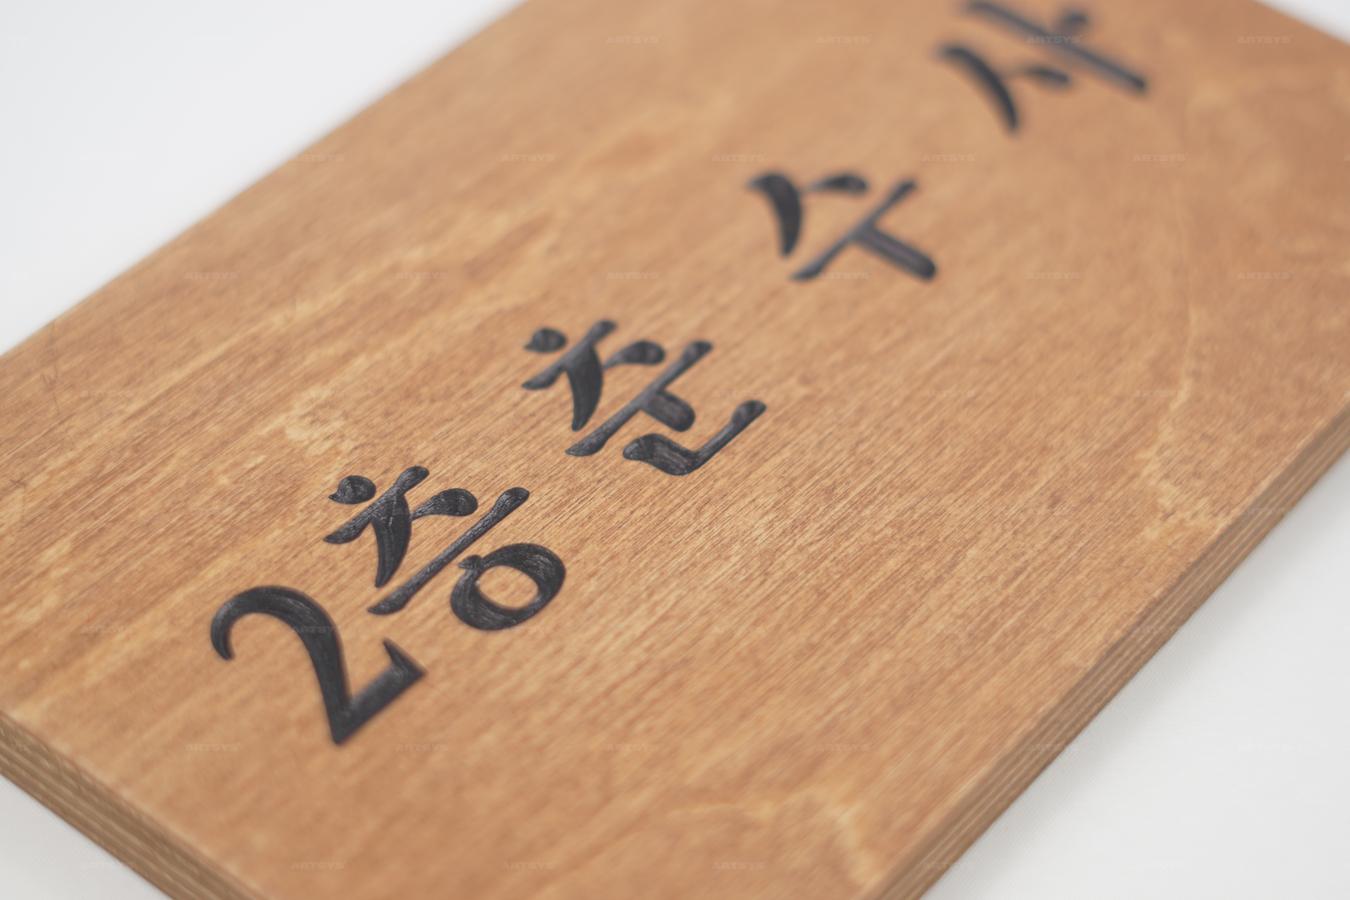 2층 춘수사
ARTSYS